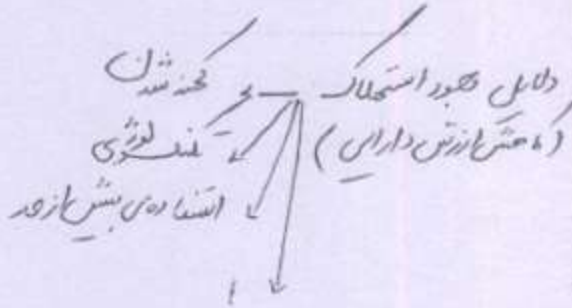 دلایل وجود استهلاک
(کاهش ارزش دارایی)
کهنه شدن
تکنولوژی
استفاده‌ی بیش از حد
!